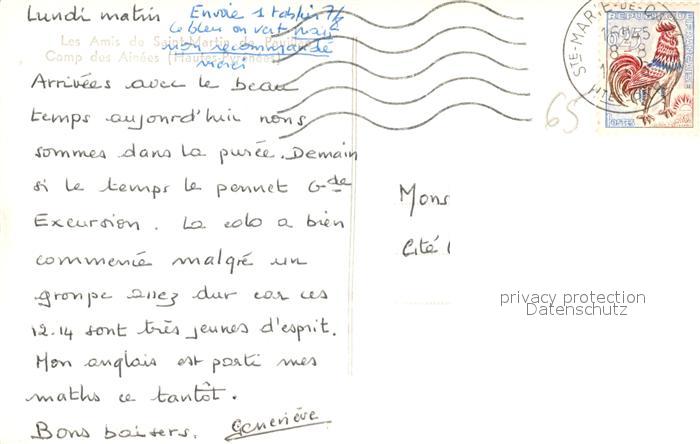 Lundi matin
Envoie 1 tablier 7/8
le bleu ou vert nay
non recommandé
merci
Les Amis de Saint-Martin de
Camp des Ainées (Hautes-Pyrénées)
Arrivées avec le beau
temps aujourd'hui nous
sommes dans la purée. Demain
si le temps le permet Gde
Excursion. La colo a bien
commencé malgré un
groupe assez dur car ces
12.14 sont très jeunes d'esprit.
Mon anglais est parti mes
maths ce tantôt.
Bons baisers. Geneviève
STE-MARIE-DE-C
16H45
8-8
HTES
REPUBLIQUE FRANCAISE
POSTES
65
Mons
Cité
privacy protection
Datenschutz